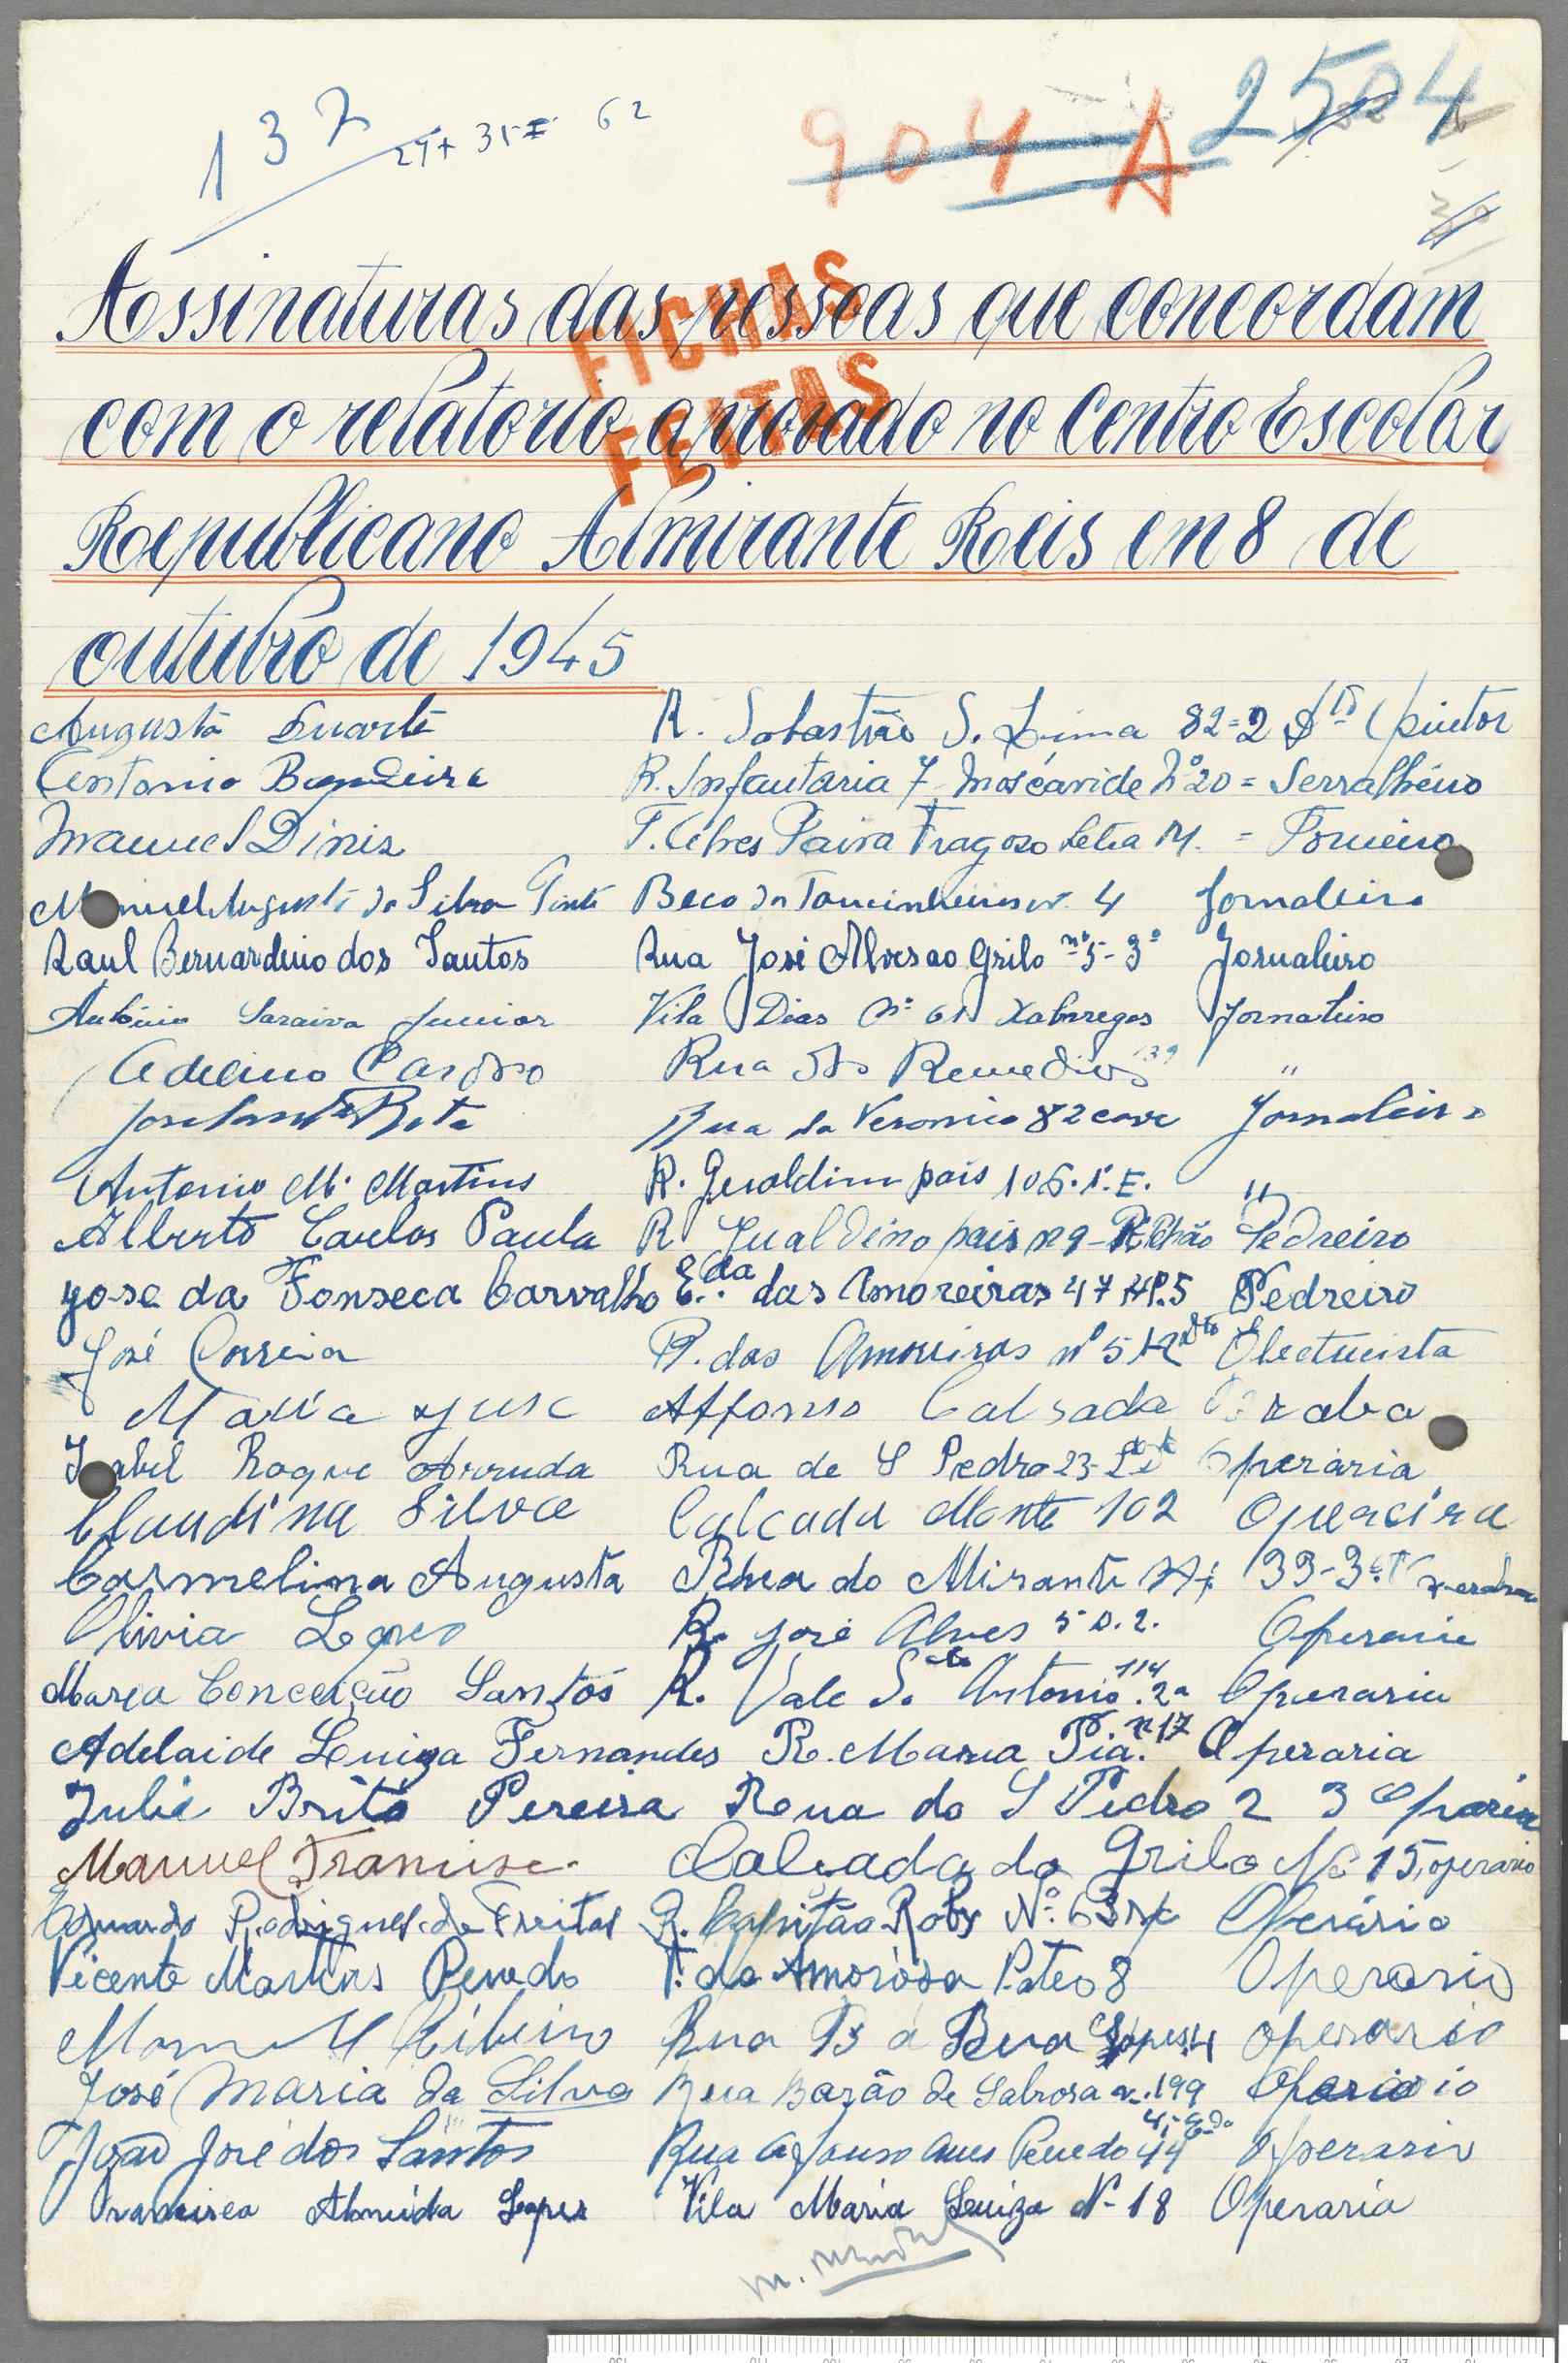 137 29+ 35= 62
904 A 2504
Assinaturas das pessoas que concordam
FICHAS
com o relatorio aprovado no Centro Escolar
FEITAS
Republicano Almirante Reis em 8 de
outubro de 1945
Augusto Duarte R. Sabastião S. Lima 82=2 Dto (pintor
Antonio Bandeira R. Infantaria 7 Moscavide Nº 20 = Serralheiro
Manuel Dinis T. Paiva Fragoso Letra M. = Torneiro
Manuel Augusto da Silva Pinto Beco da Toucinheira nº 4 Jornaleiro
Raul Bernardino dos Santos Rua José Alves ao Grilo nº 5-3º Jornaleiro
António Saraiva Junior Vila Dias Nº 61 Xabregas Jornaleiro
Adelino Cardoso Rua dos Remedios 139 "
Rua da Veronica 82 cave Jornaleiro
Antonio M. Martins R. Gualdim pais 106.1º.E. "
Alberto Carlos Paula R Gualdino pais n 9 R/Chão Pedreiro
yose da Fonseca Carvalho E.da das Amoreiras 47 P.5 Pedreiro
José Correia R. das Amoreiras nº 5 Electricista
Maria Affonso Calsada
Isabel Roque Arruda Rua de S Pedro 23- Operaria
Claudina Silva Calcada Monte 102
Carmelina Augusta Rua do Mirante 33-3º
Olivia Lopes R. José Alves 5 D. 2. Operaria
Maria Conceição Santos R. Vale Sto Antonio 114 2º Operaria
Adelaide Luiza Fernandes R. Maria Pia. nº 17 Operaria
Julia Brito Pereira Roua do S Pedro 2 3 Oparia
Manuel Francisco Calcada do Grilo Nº 15, operario
Eduardo Rodrigues de Freitas R. Capitão Roby Nº. 63 r/c Operário
Vicente Martins Penedo T. da Amorosa Pateo 8 Operario
Manuel Ribeiro Rua B a Rua Lopes 4 operario
José Maria da Silva Rua Barão de Sabrosa nº.199 Operario
João José dos Santos Rua Afonso Anes Penedo 44 4º Edo Operario
Francisca Almeida Lopes Vila Maria Luiza Nº 18 Operaria